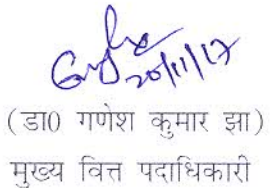 20/11/17
(डा0 गणेश कुमार झा)
मुख्य वित्त पदाधिकारी